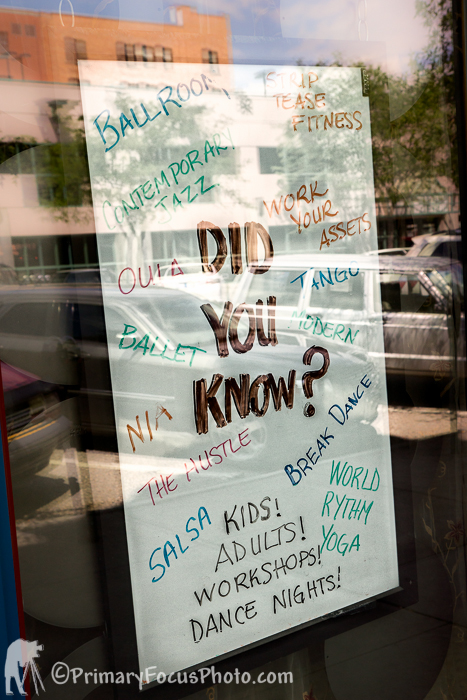 BALLROOM
STRIP
TEASE
FITNESS
CONTEMPORARY
JAZZ
WORK
YOUR
ASSETS
DID
YOU
KNOW?
OULA
TANGO
BALLET
MODERN
NIA
BREAK DANCE
THE HUSTLE
WORLD
RYTHM
YOGA
SALSA
KIDS!
ADULTS!
WORKSHOPS!
DANCE NIGHTS!
©PrimaryFocusPhoto.com